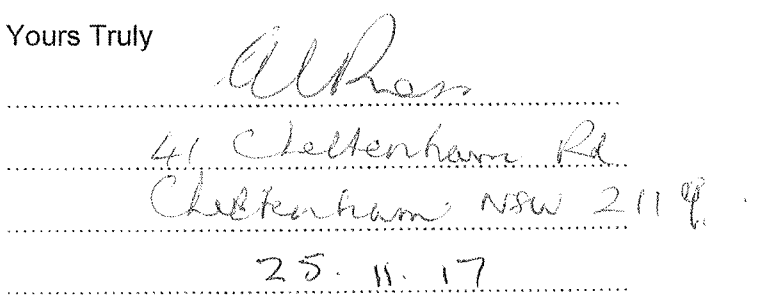 Yours Truly
41 Cheltenham Rd
Cheltenham NSW 2119.
25. 11. 17